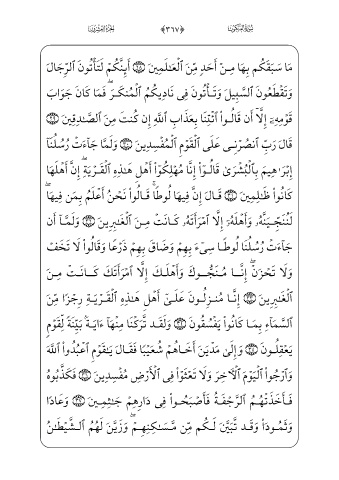 سُورَةُ العَنكَبُوتِ ﴿٣٦٧﴾ الجُزْءُ العِشْرُونَ
مَا سَبَقَكُم بِهَا مِنْ أَحَدٍ مِّنَ ٱلْعَٰلَمِينَ ۝ أَئِنَّكُمْ لَتَأْتُونَ ٱلرِّجَالَ
وَتَقْطَعُونَ ٱلسَّبِيلَ وَتَأْتُونَ فِى نَادِيكُمُ ٱلْمُنكَرَ ۖ فَمَا كَانَ جَوَابَ
قَوْمِهِۦٓ إِلَّآ أَن قَالُوا۟ ٱئْتِنَا بِعَذَابِ ٱللَّهِ إِن كُنتَ مِنَ ٱلصَّٰدِقِينَ ۝
قَالَ رَبِّ ٱنصُرْنِى عَلَى ٱلْقَوْمِ ٱلْمُفْسِدِينَ ۝ وَلَمَّا جَآءَتْ رُسُلُنَآ
إِبْرَٰهِيمَ بِٱلْبُشْرَىٰ قَالُوٓا۟ إِنَّا مُهْلِكُوٓا۟ أَهْلِ هَٰذِهِ ٱلْقَرْيَةِ ۖ إِنَّ أَهْلَهَا
كَانُوا۟ ظَٰلِمِينَ ۝ قَالَ إِنَّ فِيهَا لُوطًا ۚ قَالُوا۟ نَحْنُ أَعْلَمُ بِمَن فِيهَا ۖ
لَنُنَجِّيَنَّهُۥ وَأَهْلَهُۥٓ إِلَّا ٱمْرَأَتَهُۥ كَانَتْ مِنَ ٱلْغَٰبِرِينَ ۝ وَلَمَّآ أَن
جَآءَتْ رُسُلُنَا لُوطًا سِىٓءَ بِهِمْ وَضَاقَ بِهِمْ ذَرْعًا وَقَالُوا۟ لَا تَخَفْ
وَلَا تَحْزَنْ ۖ إِنَّا مُنَجُّوكَ وَأَهْلَكَ إِلَّا ٱمْرَأَتَكَ كَانَتْ مِنَ
ٱلْغَٰبِرِينَ ۝ إِنَّا مُنزِلُونَ عَلَىٰٓ أَهْلِ هَٰذِهِ ٱلْقَرْيَةِ رِجْزًا مِّنَ
ٱلسَّمَآءِ بِمَا كَانُوا۟ يَفْسُقُونَ ۝ وَلَقَد تَّرَكْنَا مِنْهَآ ءَايَةًۢ بَيِّنَةً لِّقَوْمٍ
يَعْقِلُونَ ۝ وَإِلَىٰ مَدْيَنَ أَخَاهُمْ شُعَيْبًا فَقَالَ يَٰقَوْمِ ٱعْبُدُوا۟ ٱللَّهَ
وَٱرْجُوا۟ ٱلْيَوْمَ ٱلْءَاخِرَ وَلَا تَعْثَوْا۟ فِى ٱلْأَرْضِ مُفْسِدِينَ ۝ فَكَذَّبُوهُ
فَأَخَذَتْهُمُ ٱلرَّجْفَةُ فَأَصْبَحُوا۟ فِى دَارِهِمْ جَٰثِمِينَ ۝ وَعَادًا
وَثَمُودَا۟ وَقَد تَّبَيَّنَ لَكُم مِّن مَّسَٰكِنِهِمْ ۖ وَزَيَّنَ لَهُمُ ٱلشَّيْطَٰنُ